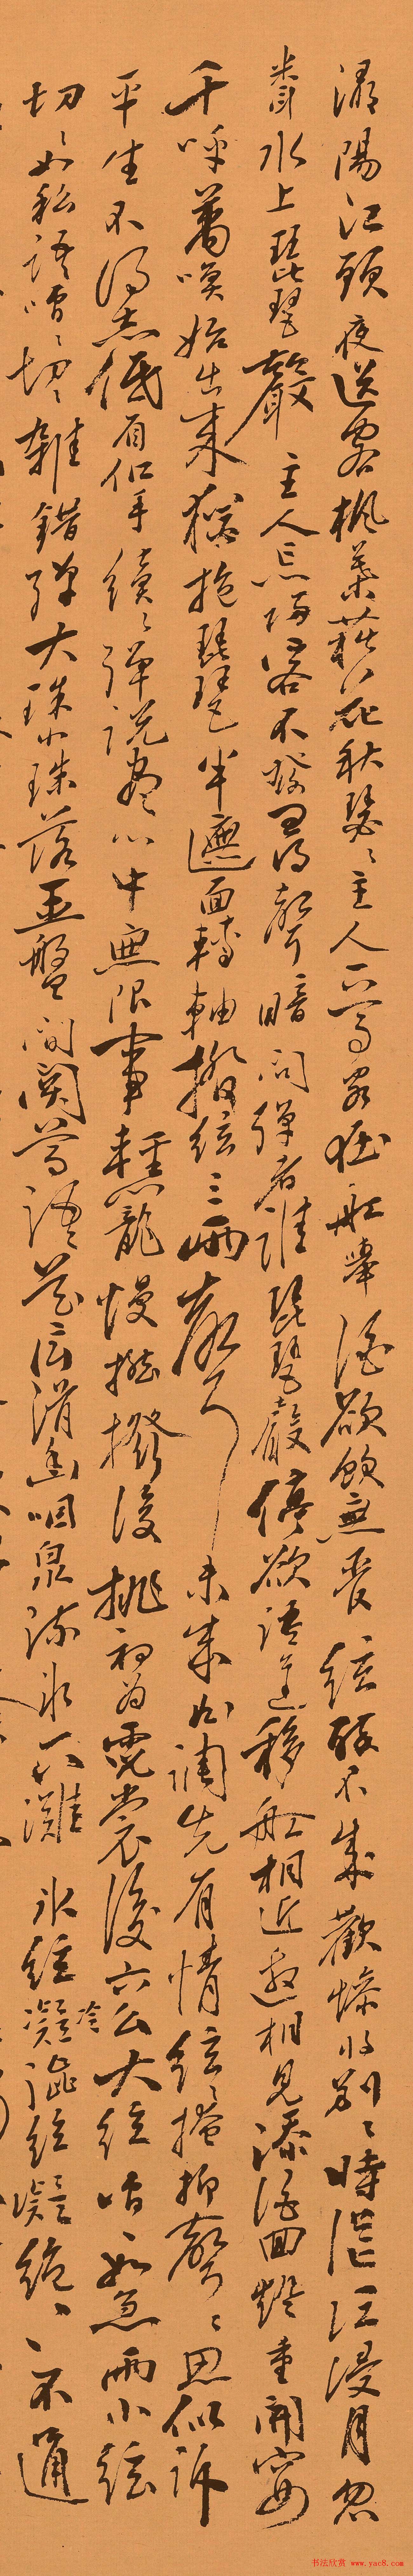 潯陽江頭夜送客楓葉荻花秋瑟〻主人下馬客在船舉酒欲飲無管絃醉不成歡慘將別〻時茫江浸月忽
聞水上琵琶聲主人忘歸客不發尋聲暗問彈者誰琵琶聲停欲語遲移船相近邀相見添酒回燈重開宴
千呼萬喚始出來猶抱琵琶半遮面轉軸撥絃三兩聲未成曲調先有情絃〻掩抑聲〻思似訴
平生不得志低眉信手續〻彈說盡心中無限事輕攏慢撚撥復挑初為霓裳後六么大絃嘈如急雨小絃
切〻如私語嘈〻切〻雜錯彈大珠小珠落玉盤間關鶯語花底滑幽咽泉流冰下灘冰絃冷凝澀絃凝絕〻不通
书法欣赏 www.yac8.com